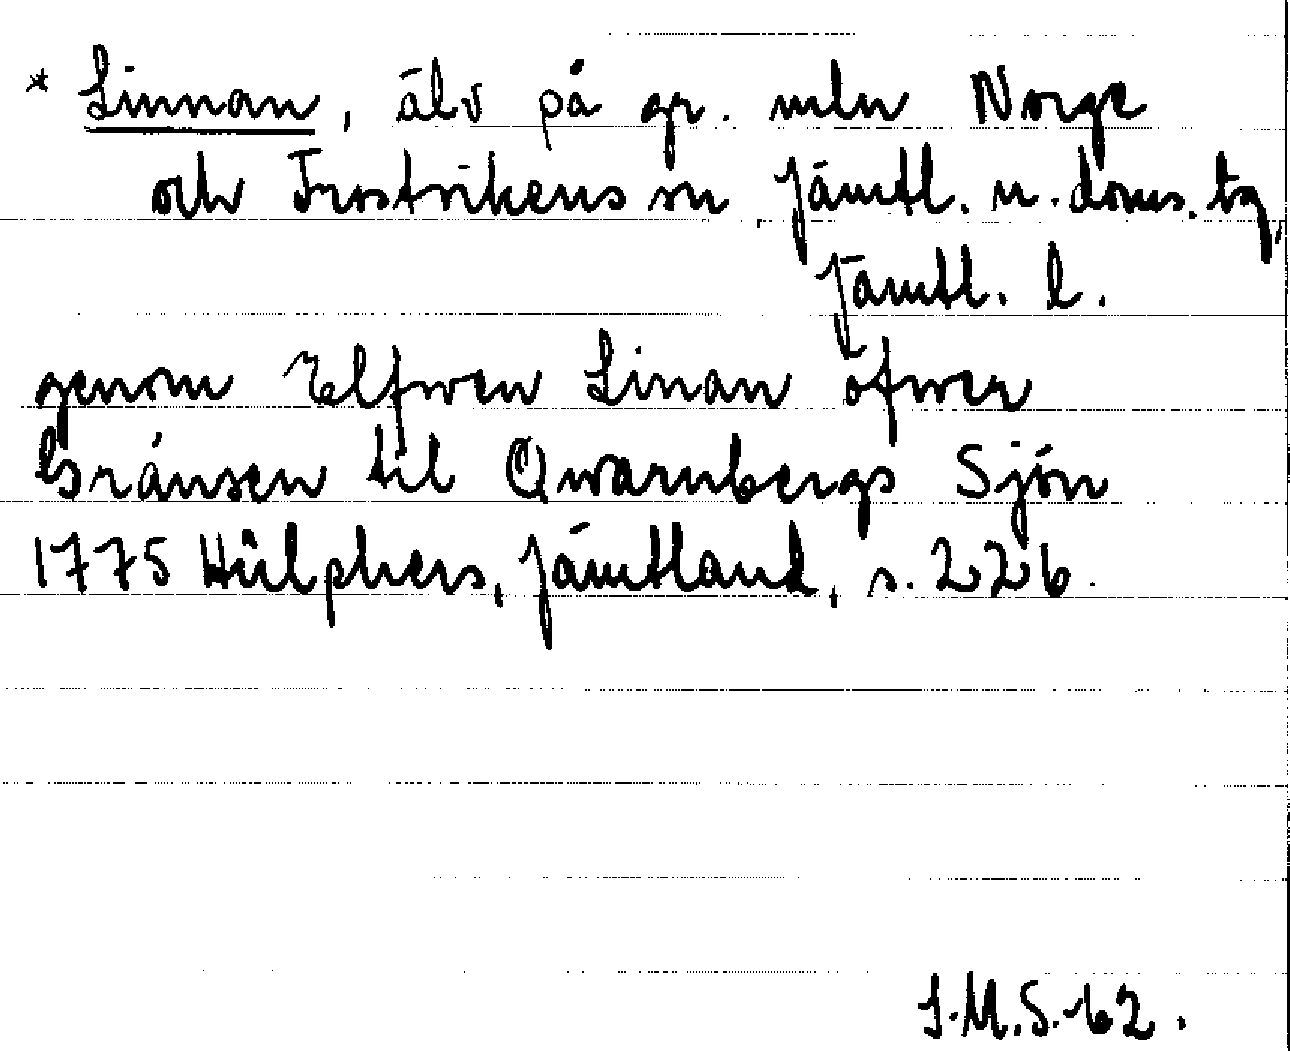 * Linnan, älv på gr. mln Norge
och Frostvikens sn Jämtl. n. doms. tg,
Jämtl. l.
genom Elfwen Linan öfwer
Gränsen til Qwarnbergs Sjön
1775 Hülphers, Jämtland, s. 226.
I.M.S. 62.